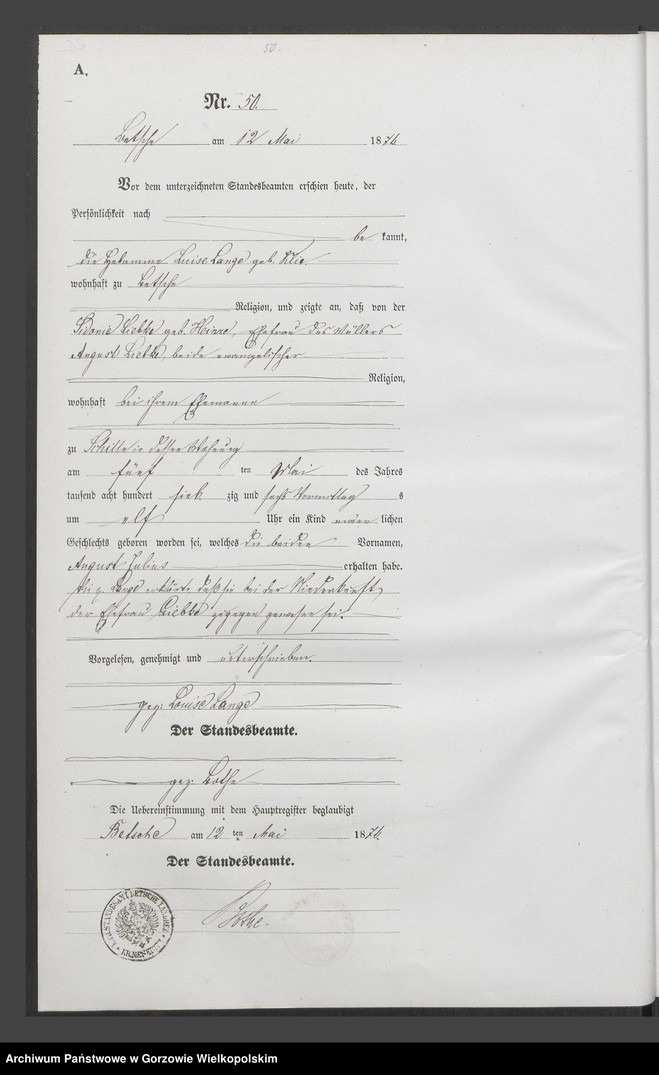 50.
A.
Nr. 50.
Betsche am 12 Mai 1876
Vor dem unterzeichneten Standesbeamten erschien heute, der
Persönlichkeit nach
be kannt,
die Hebamme Luise Lange geb.
wohnhaft zu Betsche
Religion, und zeigte an, daß von der
Sidonie Liebke geb. Heinze, Ehefrau des Müllers
August Liebke, beide evangelischer
Religion,
wohnhaft bei ihrem Ehemanne
zu Schilln in dessen Wohnung
am fünf ten Mai des Jahres
tausend acht hundert sieb zig und sechs Vormittag s
um elf Uhr ein Kind männ lichen
Geschlechts geboren worden sei, welches die beiden Vornamen,
August Julius erhalten habe.
Die p. Lange erklärte daß sie bei der Niederkunft
der Ehefrau Liebke zugegen gewesen sei.
Vorgelesen, genehmigt und unterschrieben.
gez: Louise Lange
Der Standesbeamte.
gez: Bothe
Die Uebereinstimmung mit dem Hauptregister beglaubigt
Betsche am 12 ten Mai 1876.
Der Standesbeamte.
Bothe.
Archiwum Państwowe w Gorzowie Wielkopolskim